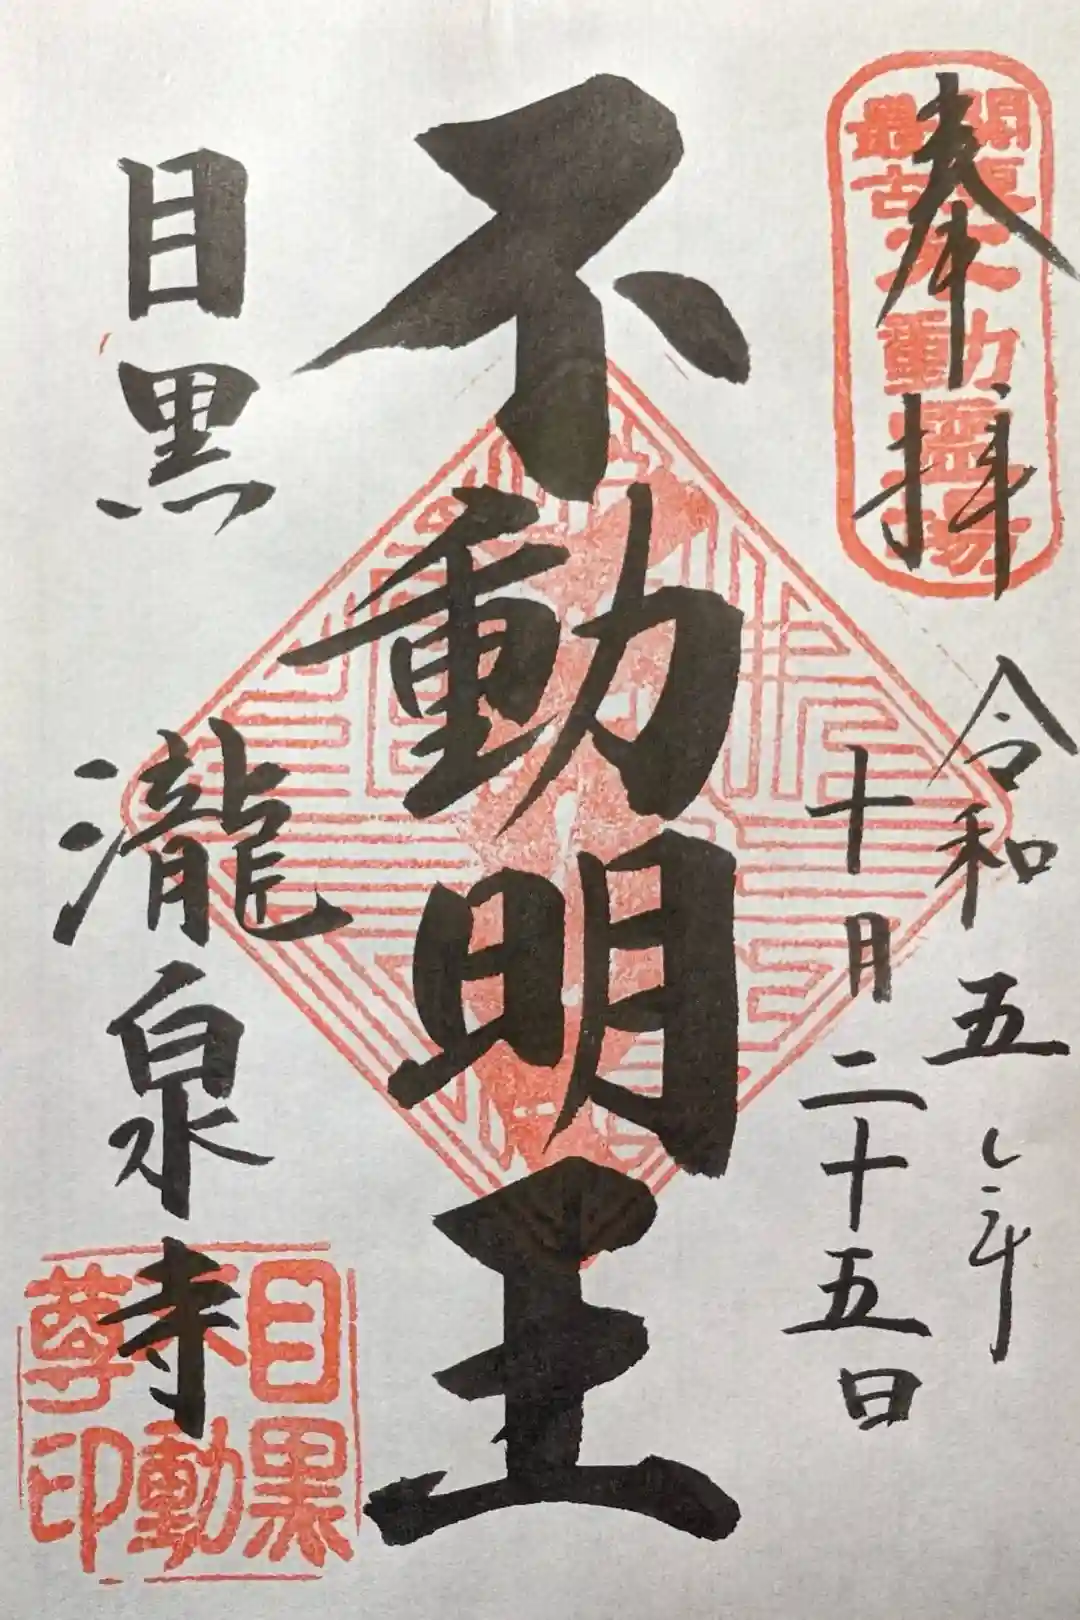 奉拝
関東
最古
不動霊場
令和五年
十月二十五日
不動明王
目黒
瀧泉寺
目黒
不動
尊印